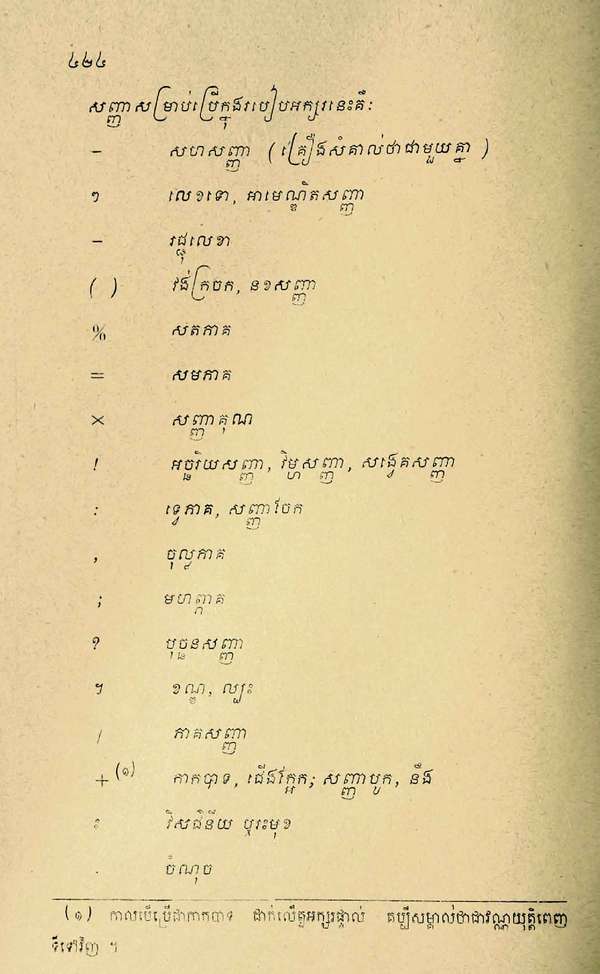 ៤២៤
សញ្ញាសម្រាប់ប្រើក្នុងរបៀបអក្សរនេះគឺ:
- សហសញ្ញា (គ្រឿងសំគាល់ថាជាមួយគ្នា )
ៗ លេខទោ, អាមេណ្ឌិតសញ្ញា
– រដ្ឋលេខា
( ) វង់ក្រចក, នខសញ្ញា
% សតភាគ
= សមភាគ
× សញ្ញាគុណ
! អច្ឆរិយសញ្ញា, វិម្ហសញ្ញា, សង្វេគសញ្ញា
: ទ្វេភាគ, សញ្ញាចែក
, ចុល្លភាគ
; មហព្ភាគ
? បុច្ឆនសញ្ញា
។ ខណ្ឌ, ល្បះ
/ ភាគសញ្ញា
+(១) កាកបាទ, ជើងក្អែក; សញ្ញាបូក, នឹង
: វិសជ៌នីយ ឬរះមុខ
. ចំណុច
(១) កាលបើប្រើជាកាកបាទ ដាក់លើតួអក្សរផ្ទាល់ គប្បីសម្គាល់ថាជាវណ្ណយុត្តិពេញ
ទីទៅវិញ ។